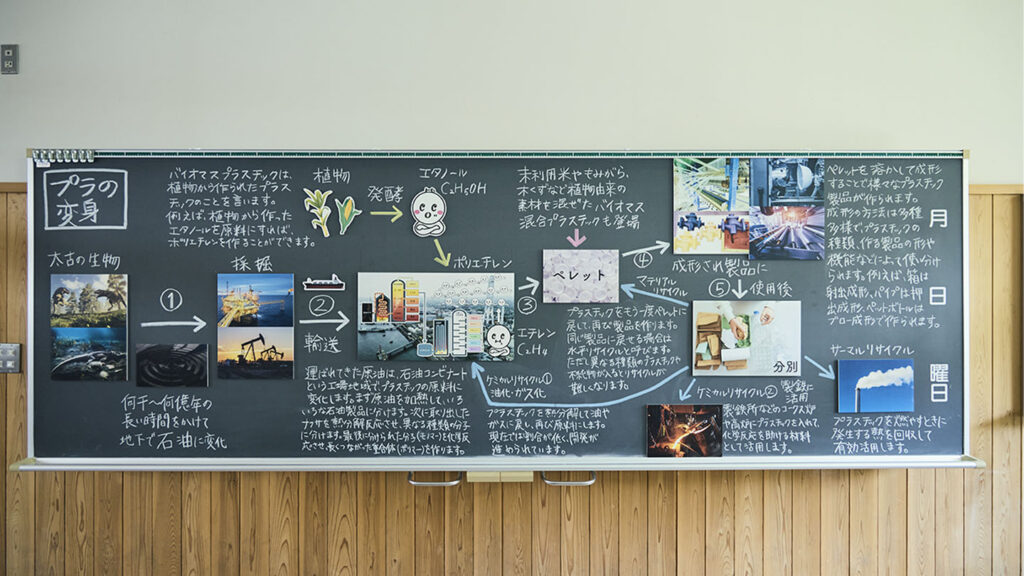 プラの
変身
バイオマスプラスチックは、
植物から作られたプラス
チックのことを言います。
例えば、植物から作った
エタノールを原料にすれば、
ポリエチレンを作ることができます。
植物
発酵
エタノール
C₂H₅OH
未利用米やもみがら、
木くずなど植物由来の
素材を混ぜたバイオマス
混合プラスチックも登場
ペレットを溶かして成形
することで様々なプラスチック
製品が作られます。
成形の方法は多種
多様でプラスチックの
種類、作る製品の形や
機能などによって使い分け
られます。例えば、箱は
射出成形、パイプは押
出成形、ペットボトルは
ブロー成形で作られます。
月
日
曜
日
太古の生物
①
採掘
②
輸送
ポリエチレン
エチレン
C₂H₄
③
ペレット
④
成形され製品に
⑤
使用後
マテリアル
リサイクル
プラスチックをもう一度ペレットに
戻して、再び製品を作ります。
同じ製品に戻せる場合は
水平リサイクルと呼びます。
ただし異なる種類のプラスチックや
不純物が入るとリサイクルが
難しくなります。
分別
サーマルリサイクル
何千〜何億年の
長い時間をかけて
地下で石油に変化
運ばれてきた原油は、石油コンビナート
という工場地域でプラスチックの原料に
変化します。まず原油を加熱していろ
いろな石油製品に分けます。次に取り出した
ナフサを熱分解反応させ、異なる種類の分子
に分けます。最後に分けられた分子(モノマー)を化学反
応させて長くつなげた重合体(ポリマー)を作ります。
ケミカルリサイクル①
油化・ガス化
プラスチックを熱分解して油や
ガスに戻し、再び原料にします。
現在では割合が低く、開発が
進められています。
ケミカルリサイクル②
製鉄に
活用
製鉄所などのコークス炉
や高炉にプラスチックを入れて
化学反応を助ける材料
として活用します。
プラスチックを燃やすときに
発生する熱を回収して
有効活用します。